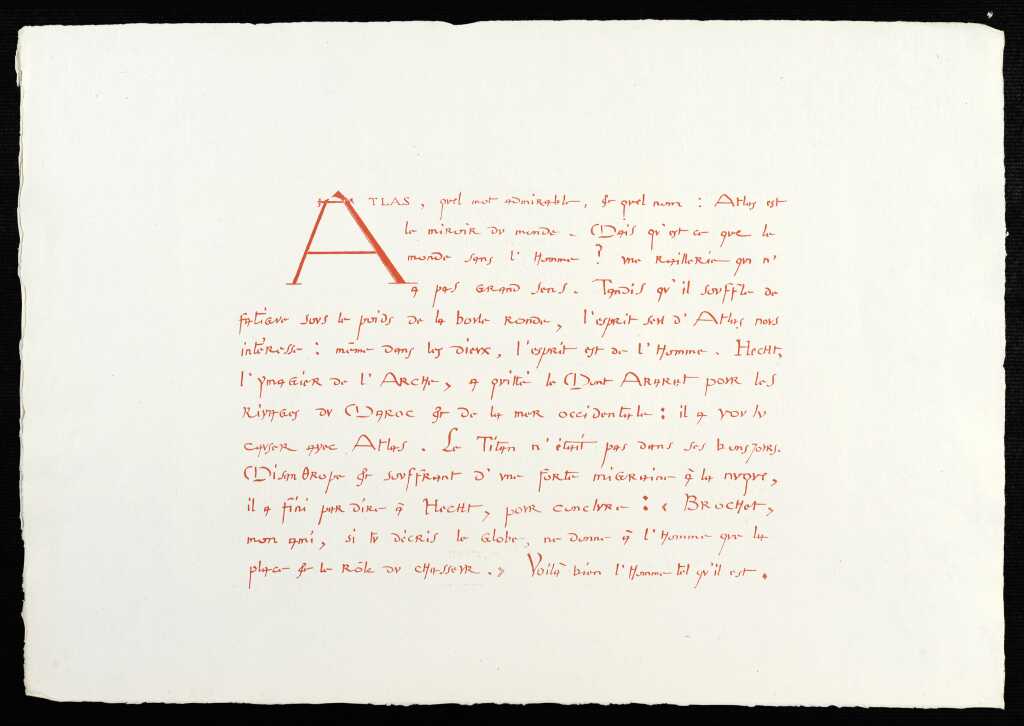 ATLAS, quel mot admirable, & quel nom : Atlas est
le miroir du monde. Mais qu'est ce que le
monde sans l'Homme ? une raillerie qui n'
a pas grand sens. Tandis qu'il souffle de
fatigue sous le poids de la boule ronde, l'esprit seul d'Atlas nous
intéresse : même dans les dieux, l'esprit est de l'Homme. Hecht,
l'ymagier de l'Arche, a quitté le Mont Ararat pour les
rivages du Maroc & de la mer occidentale : il a voulu
causer avec Atlas. Le Titan n'était pas dans ses bons jours.
Misanthrope & souffrant d'une forte migraine à la nuque,
il a fini par dire à Hecht, pour conclure : « Brochet,
mon ami, si tu décris le globe, ne donne à l'Homme que la
place & le rôle du chasseur. » Voilà bien l'Homme tel qu'il est.